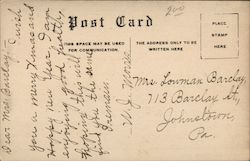 Post Card
THIS SPACE MAY BE USED
FOR COMMUNICATION.
THE ADDRESS ONLY TO BE
WRITTEN HERE
PLACE
STAMP
HERE
Dear Mrs Barclay,-
I wish
you a merry Xmas and
Happy New Year I am
enjoying good health,
Hoping this will
find you the same
Mrs. Lowman Barclay,
713 Barclay St,
Johnstown,
Pa.